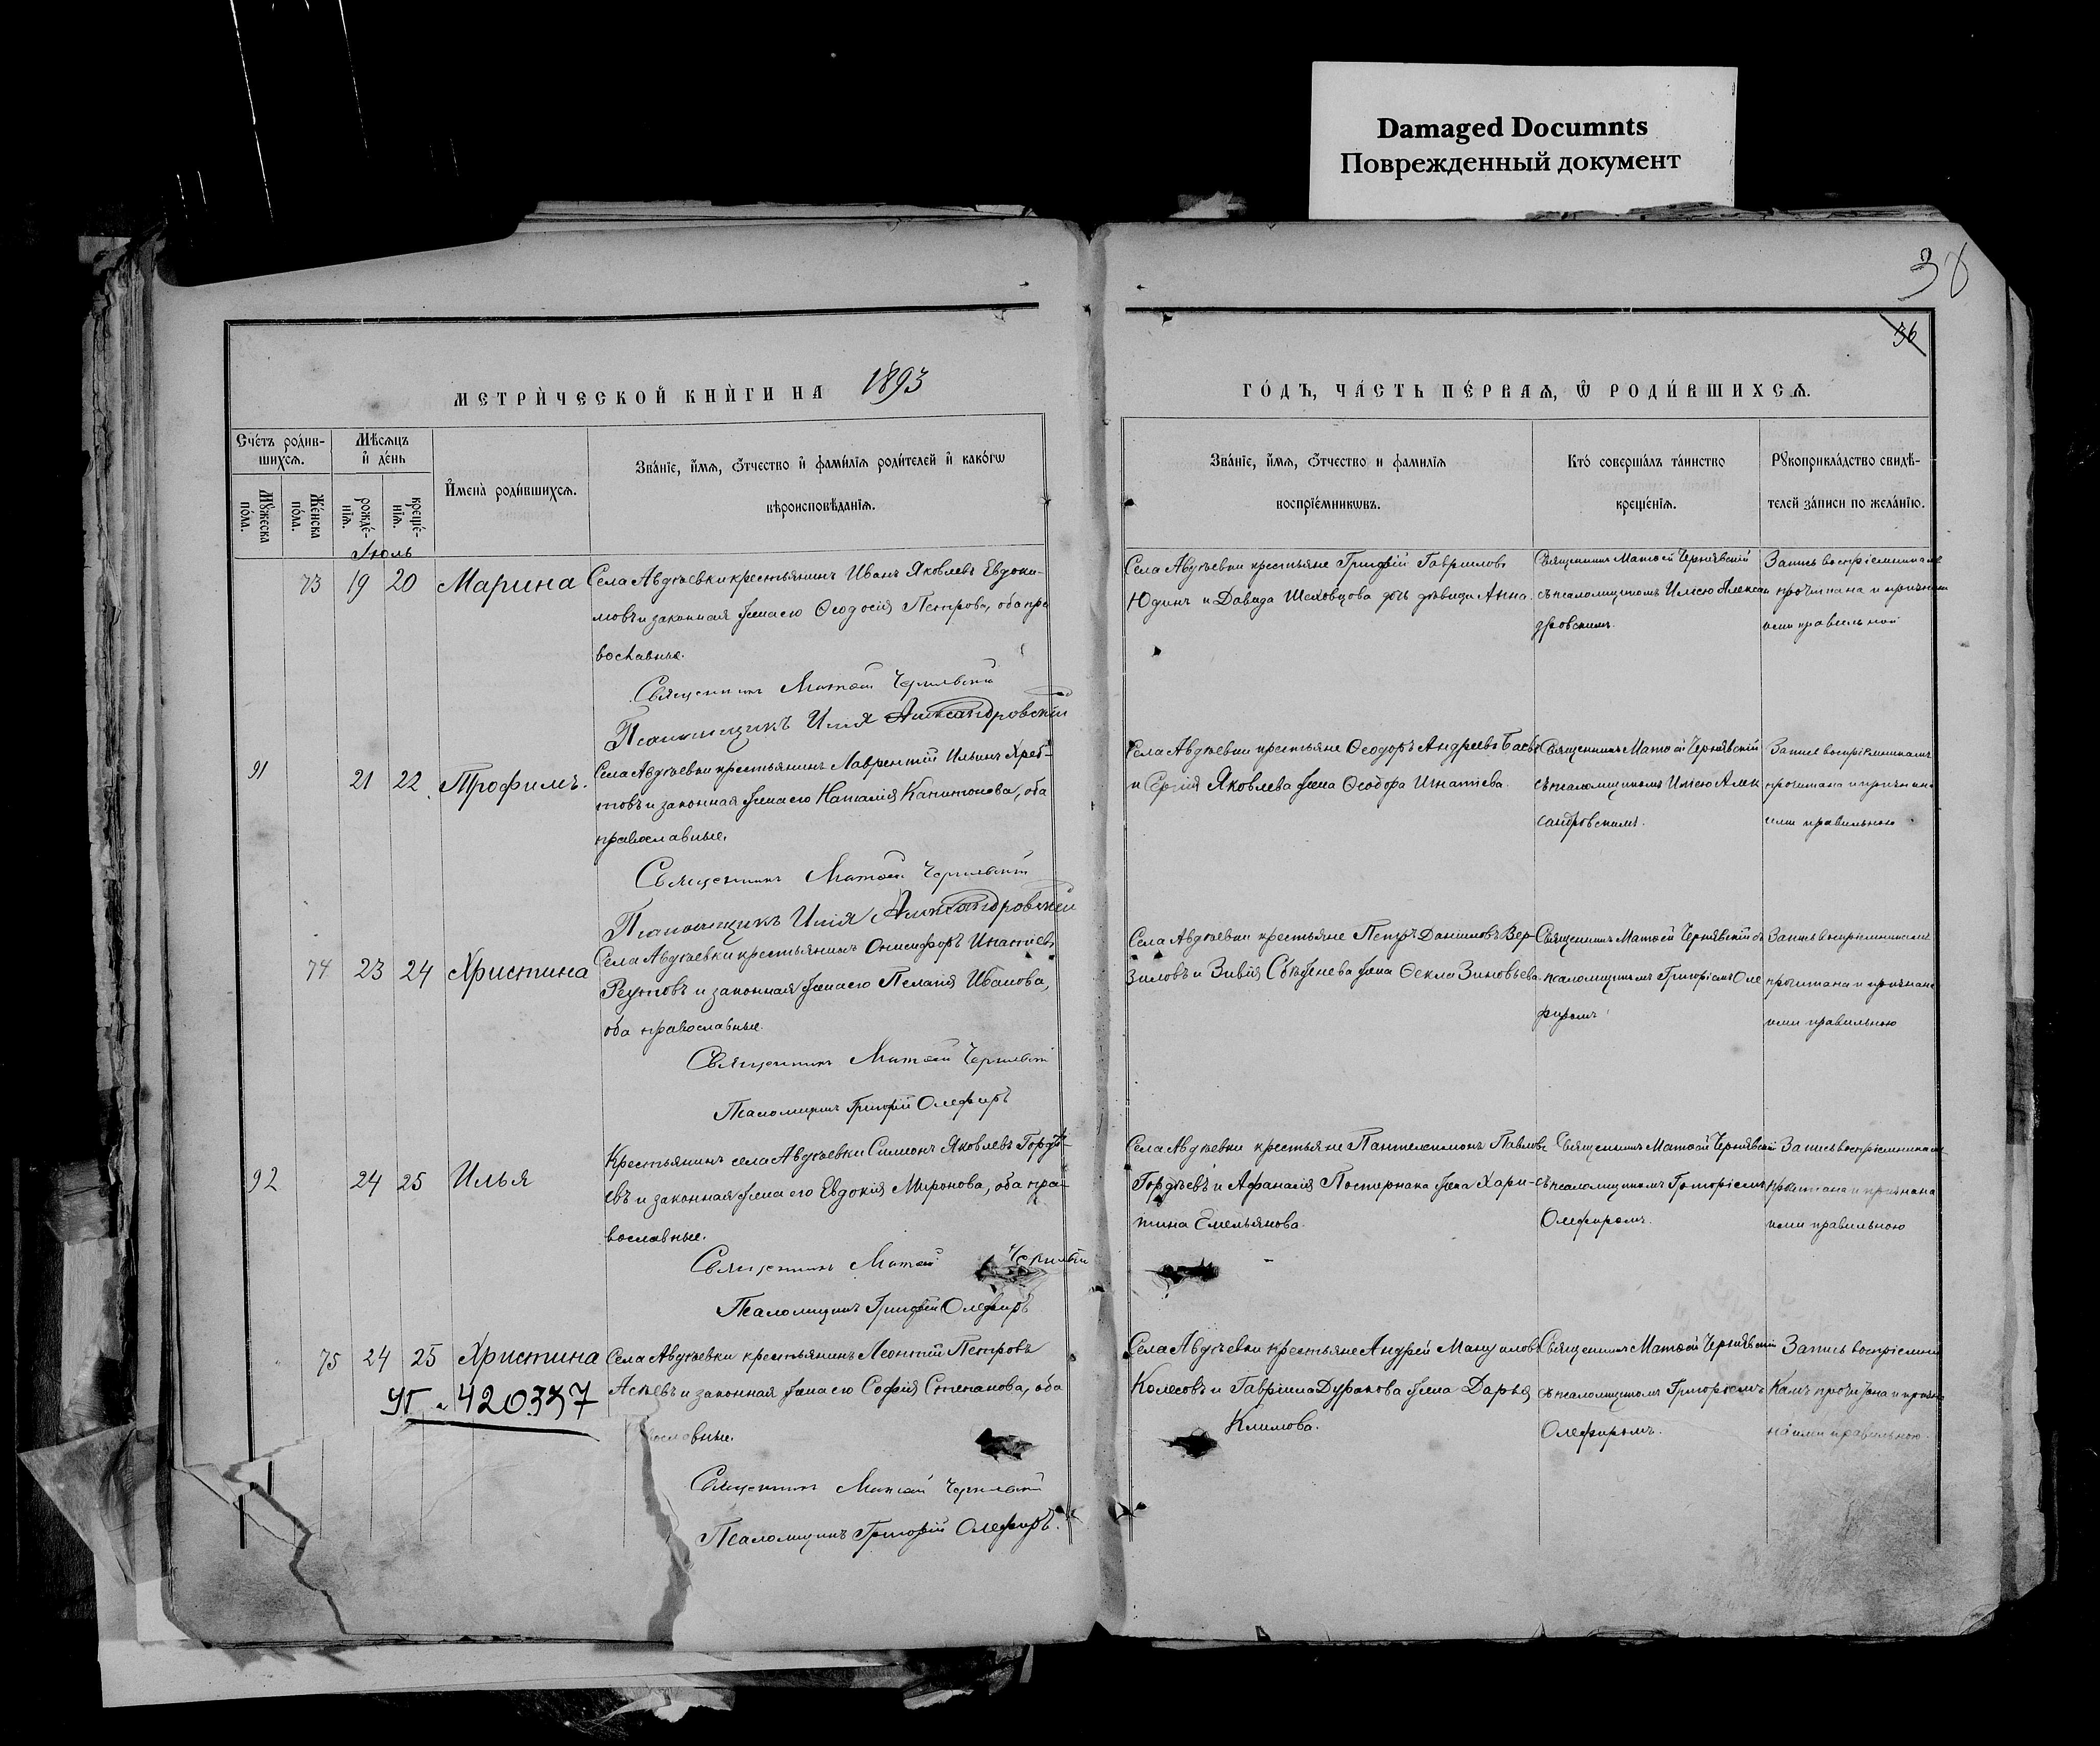 Damaged Documnts
Поврежденный документ
38
36
МЕТРИ́ЧЕСКОЙ КНИ́ГИ НА 1893
ГО́ДЪ, ЧА́СТЬ ПЕ́РВАЯ, Ѿ РОДИ́ВШИХСѦ.
Сче́тъ роди́в-
шихсѧ.
Мꙋ́жеска
по́ла.
Же́нска
по́ла.
Мѣ́сѧцъ
и҆ де́нь
рожде́-
нїѧ.
креще́-
нїѧ.
И҆мена̀ роди́вшихсѧ.
Зва́нїе, и҆́мѧ, ѻ҆́тчество и҆ фами́лїѧ роди́телей и҆ како́гѡ
вѣроисповѣ́данїѧ.
Зва́нїе, и҆́мѧ, ѻ҆́тчество и фами́лїѧ
воспрїе́мникѡвъ.
Кто̀ соверша́лъ та́инство
креще́нїѧ.
Рꙋкоприкла́дство свидѣ́-
телей за́писи по жела́нїю.
Іюль
73 19 20 Марина
Села Авдѣевки крестьянинъ Иванъ Яковлевъ Евдоки-
мовъ и законная жена его Ѳеодосія Петрова, оба пра
вославные.
Священникъ Матѳей Чернявскій
Псаломщикъ Илія Александровскій
Села Авдѣевки крестьяне Гавриловъ
Юдинъ и Давида Шаховцова дочь дѣвица Анна.
Священникъ Матѳей Чернявскій
съ псаломщикомъ Иліею Алексан
дровскимъ.
Запись воспріемниками
прочитана и признана
ими правильной
91 21 22 Трофимъ.
Села Авдѣевки крестьянинъ Лаврентій Ильинъ Хреб-
товъ и законная жена его Наталія Капитонова, оба
православные.
Священникъ Матѳей Чернявскій
Псаломщикъ Илія Александровскій
Села Авдѣевки крестьяне Ѳеодоръ Андреевъ
и Сергія Яковлева жена Ѳеодора Игнатіева.
Священникъ Матѳей Чернявскій
съ псаломщикомъ Иліею Алек
сандровскимъ.
Запись воспріемниками
прочитана и признана
ими правильною
74 23 24 Христина
Села Авдѣевки крестьянинъ Онисифоръ Игнатіевъ
Реутовъ и законная жена его Пелагія Иванова,
оба православные.
Священникъ Матѳей Чернявскій
Псаломщикъ Григорій Олефиръ
Села Авдѣевки крестьяне Петръ Даніиловъ Вер-
зиловъ и жена Ѳекла Зиновьева.
Священникъ Матѳей Чернявскій съ
псаломщикомъ Григоріемъ Оле
фиромъ
Запись воспріемниками
прочитана и признана
ими правильною
92 24 25 Илья
Крестьянинъ села Авдѣевки Симеонъ Яковлевъ Гордѣ-
евъ и законная жена его Евдокія Миронова, оба пра-
вославные.
Священникъ Матѳей Чернявскій
Псаломщикъ Григорій Олефиръ
Села Авдѣевки крестьяне Пантелеимонъ Павловъ
Гордѣевъ и Афанасія Постернака жена Хари-
тина Емельянова.
Священникъ Матѳей Чернявскій
съ псаломщикомъ Григоріемъ
Олефиромъ.
Запись воспріемниками
прочитана и признана
ими правильною
75 24 25 Христина
УГ № 420337
Села Авдѣевки крестьянинъ Леонтій Петровъ
Асѣевъ и законная жена его Софія Степанова, оба
вославные.
Священникъ Матѳей Чернявскій
Псаломщикъ Григорій Олефиръ.
Села Авдѣевки крестьяне Андрей Мануиловъ
Колесовъ и Гавріила Дуракова жена Дарья
Климова.
Священникъ Матѳей Чернявскій
съ псаломщикомъ Григоріемъ
Олефиромъ.
Запись воспріемни
ками прочитана и призна
на ими правильною.